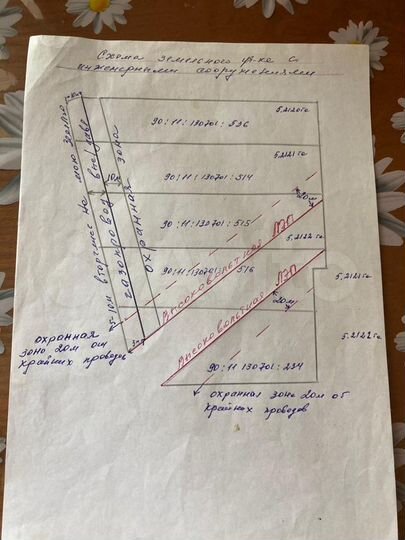 Схема земельного уч-ка с
инженерными сооружениями
90:11:130701:536
5,2120 га
5,2121 га
90:11:130701:514
10м
20м
90:11:130701:515
5,2122 га
90:11:130701:516
5,2121 га
5,2122 га
вторгшиес на мою землю
газопровод
охранная зона
Высоковольтная ЛЭП
Высоковольтная ЛЭП
20м
3м
охранная
зона 20м от
крайних проводов
90:11 130701:234
охранная зона 20м от
крайних проводов